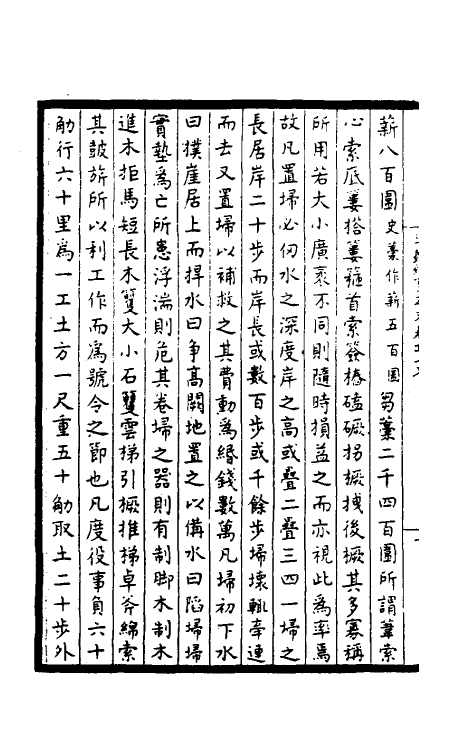 薪八百圍史藁作薪五百圍芻藁二千四百圍所謂葦索
心索底蔞搭蔞箍首索簽樁磕橛拐橛拽後橛其多寡稱
所用若大小廣袤不同則隨時損益之而亦視此為率焉
故凡置埽必仞水之深度岸之高或疊二疊三四一埽之
長居岸二十步而岸長或數百步或千餘步埽壞輒牽連
而去又置埽以補救之其費動為緡錢數萬凡埽初下水
曰撲崖居上而捍水曰争高闕地置之以備水曰陷埽埽
實墊為亡所患浮湍則危其卷埽之器則有制脚木制木
進木拒馬短長木籰大小石籰雲梯引橛推梯卓斧綿索
其鼓旂所以利工作而為號令之節也凡度役事負六十
觔行六十里為一工土方一尺重五十觔取土二十步外